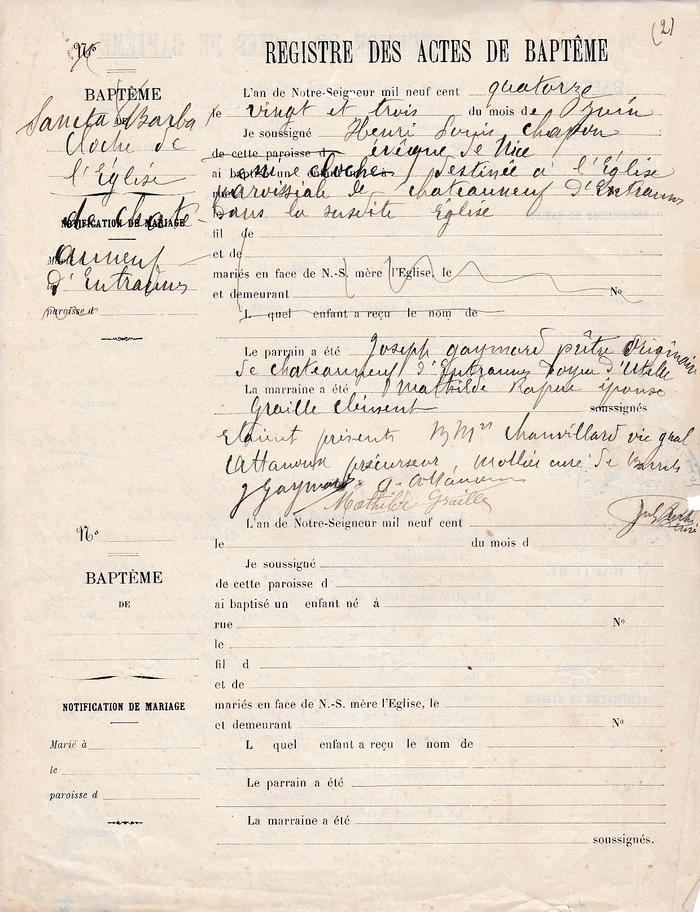 (2)
REGISTRE DES ACTES DE BAPTÊME
Nº
BAPTÊME
DE
Sancta Barba
Cloche de
l'Église
de Chate-
NOTIFICATION DE MARIAGE
auneuf
d'Entraunes
paroisse d
L'an de Notre-Seigneur mil neuf cent quatorze
le vingt et trois du mois de juin
Je soussigné Henri Louis Chapon
de cette paroisse d évêque de Nice
ai baptisé une cloche destinée à l'Église
paroissiale de chateauneuf d'Entraunes
Dans la susdite Église
fil de
et de
mariés en face de N.-S. mère l'Eglise, le
et demeurant Nº
L quel enfant a reçu le nom de
Le parrain a été Joseph gaymard prêtre originaire
de chateauneuf d'Entraunes Doyen d'Utelle
La marraine a été Mathilde épouse
Graille Clément soussignés
Etaient présents MMrs Chanvillard vic gnal
Attanoux précurseur, Molliés curé de
J Gaymard
Mathilde Graille
curé
Nº
BAPTÊME
DE
NOTIFICATION DE MARIAGE
Marié à
le
paroisse d
L'an de Notre-Seigneur mil neuf cent
le du mois d
Je soussigné
de cette paroisse d
ai baptisé un enfant né à
rue Nº
le
fil d
et de
mariés en face de N.-S. mère l'Eglise, le
et demeurant Nº
L quel enfant a reçu le nom de
Le parrain a été
La marraine a été
soussignés.